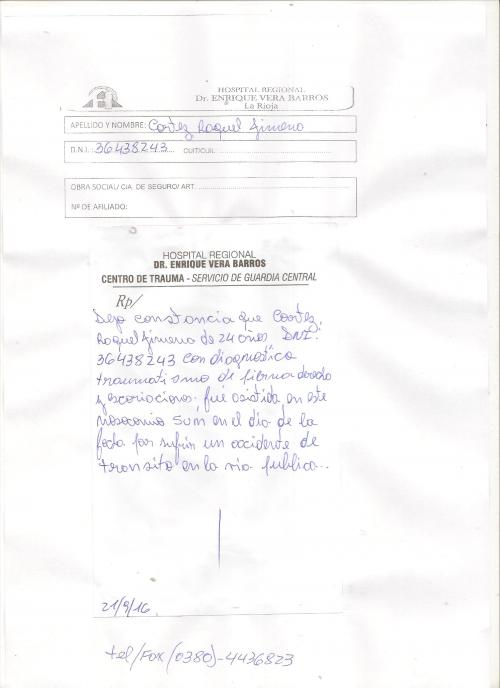 HOSPITAL REGIONAL
Dr. ENRIQUE VERA BARROS
La Rioja
APELLIDO Y NOMBRE: Cortez Raquel Jimena
D.N.I.: 36438243 CUIT/CUIL:
OBRA SOCIAL/ CIA. DE SEGURO/ ART
Nº DE AFILIADO:
HOSPITAL REGIONAL
DR. ENRIQUE VERA BARROS
CENTRO DE TRAUMA - SERVICIO DE GUARDIA CENTRAL
Rp/
Dejo constancia que Cortez,
Raquel Jimena de 24 años, DNI:
36438243 con diagnostico
traumatismo de derecho
y escoriaciones, fué asistida en este
nosocomio en el día de la
fecha por sufrir un accidente de
transito en la via publica...
21/9/16.
tel/Fax (0380)-4436823